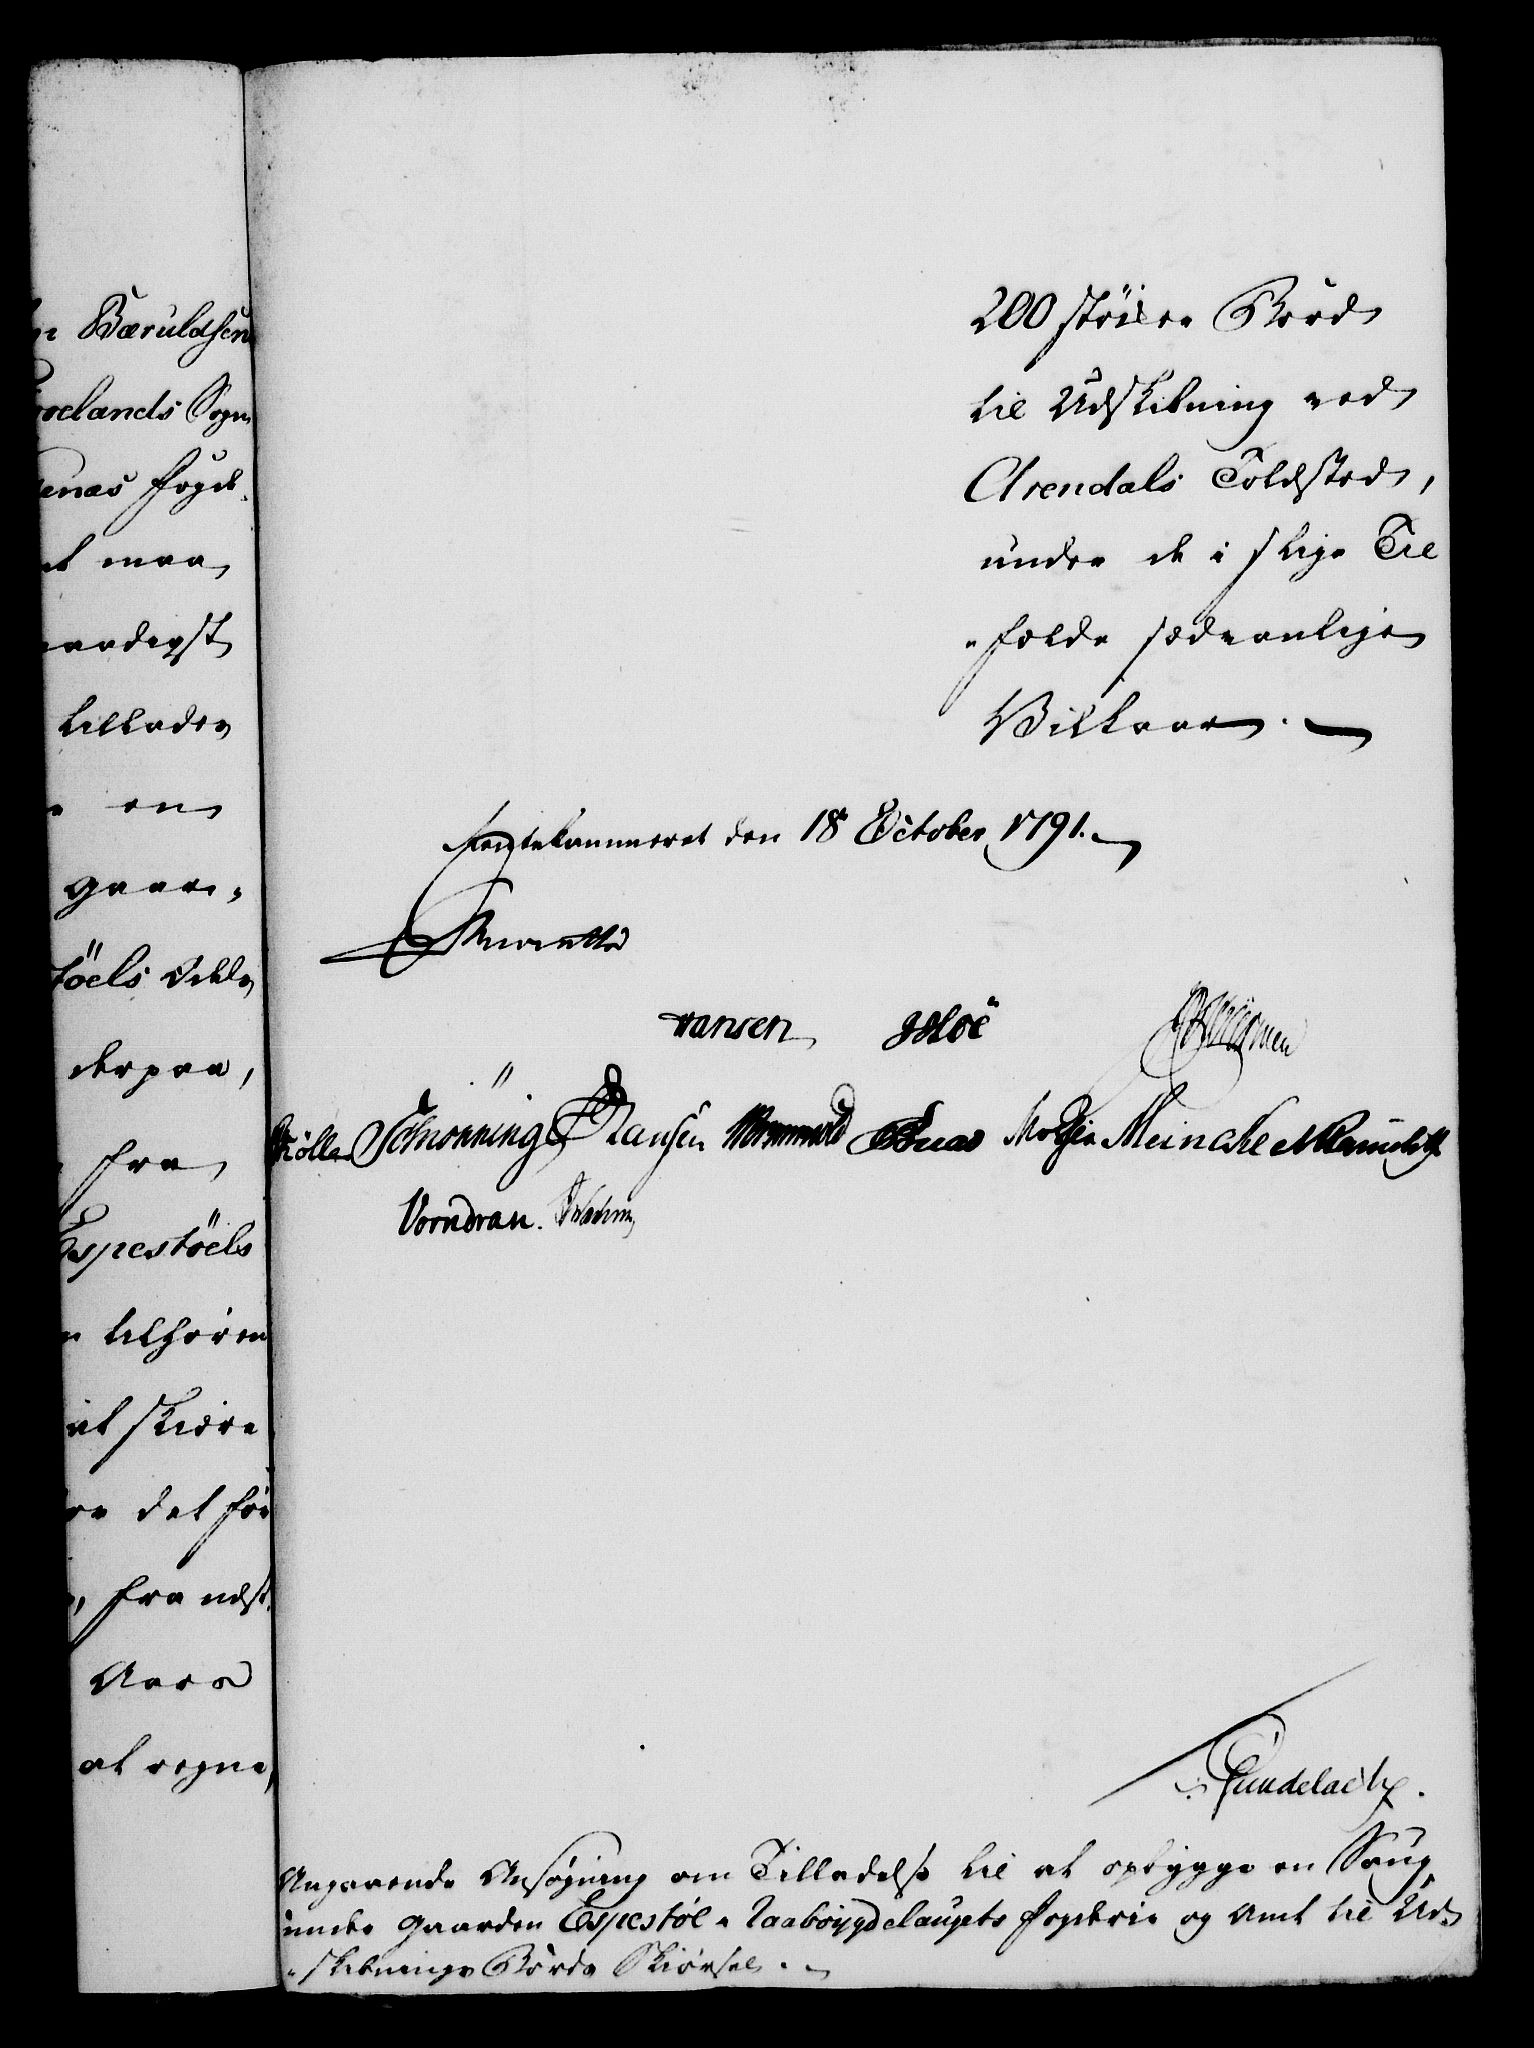 Bæruldsen
Sogn
enæs Fogde-
et maa
naadigst
tillades
en
Gaar-
töels Elv
derpaa,
fra
Espestöels
tilhören
at skiære
det för
, fra næst
Aars
at regne,
200 störrer Bord
til Udskibning ved
Arendals Toldsted,
under de i slige Til
-fælde sædvanlige
Vilkaar. —
Rentekammeret den 18 October 1791. —
Hansen
Schiönning Hansen Wormskiold Meincke
Vorndran.
Gundelach.
Angaaende Ansøgning om Tilladelse til at opbygge en Saug
under Gaarden Espestøl i Raabøygdelaugets Fogderie og Amt til Ud-
-skibnings Bords Skiørsel. —